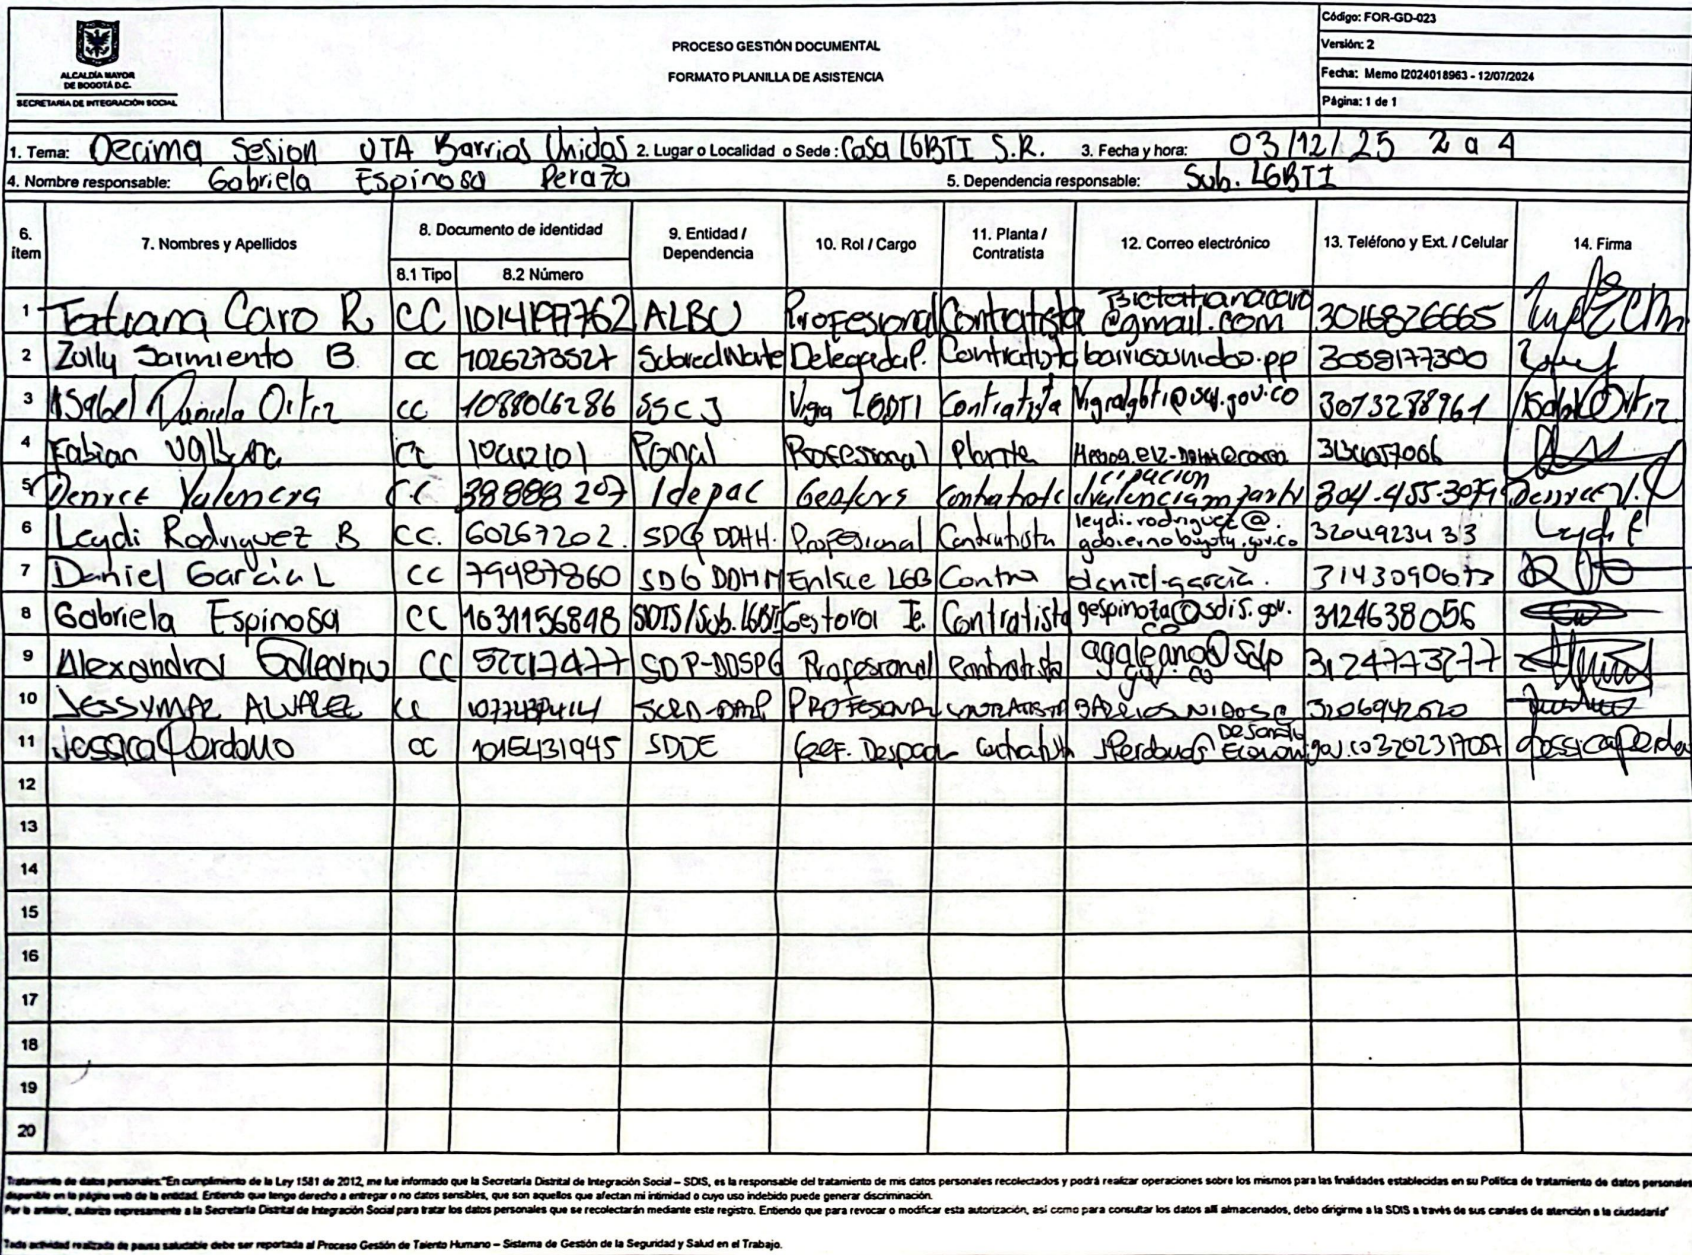 ALCALDÍA MAYOR
DE BOGOTÁ D.C.
SECRETARÍA DE INTEGRACIÓN SOCIAL
PROCESO GESTIÓN DOCUMENTAL
FORMATO PLANILLA DE ASISTENCIA
Código: FOR-GD-023
Versión: 2
Fecha: Memo I2024018963 - 12/07/2024
Página: 1 de 1
1. Tema: Decima Sesion UTA Barrios Unidos 2. Lugar o Localidad o Sede: Casa LGBTI S.R. 3. Fecha y hora: 03/12/25 2 a 4
4. Nombre responsable: Gabriela Espinosa Peraza 5. Dependencia responsable: Sub. LGBTI
6. ítem 7. Nombres y Apellidos 8. Documento de identidad 8.1 Tipo 8.2 Número 9. Entidad / Dependencia 10. Rol / Cargo 11. Planta / Contratista 12. Correo electrónico 13. Teléfono y Ext. / Celular 14. Firma
1 Tatiana Caro R CC ALBU Profesional Contratista @gmail.com 3016826665
2 Zully Sarmiento B. CC 1026273527 Subred Norte Delegada P. Contratista barriosunidos.pp 3058177300
3 Isabel Daniela Ortiz CC 1088016286 SSCJ Contratista 3073288961 Isabel Ortiz
4 Fabian CC Ponal Profesional Planta
5 Denyce Valencia CC 38888207 Idepac Contratista 304-455-3079
6 Leydi Rodriguez B CC. 60267202. SDG DDHH. Profesional Contratista leydi.rodriguez@. gobiernobogota.gov.co 3204923433
7 Daniel Garcia L CC 79487860 SDG DDHH Enlace LGB Contra daniel.garcia.
8 Gabriela Espinosa CC 1031156848 SDIS/Sub. LGBTI Gestora Te. Contratista gespinoza@sdis.gov.co 3124638056
9 Alexandra Galeano CC SDP-DDSPG Profesional Contratista agaleano@sdp gov.co 3124773277
10 JESSYMAR ALVAREZ CC PROFESIONAL CONTRATISTA 3206942620
11 Jessica Perdomo CC 1015431945 SDDE Ref. Despach Contratista Desarrollo Econom gov.co
12
13
14
15
16
17
18
19
20
Tratamiento de datos personales:"En cumplimiento de la Ley 1581 de 2012, me fue informado que la Secretaría Distrital de Integración Social – SDIS, es la responsable del tratamiento de mis datos personales recolectados y podrá realizar operaciones sobre los mismos para las finalidades establecidas en su Política de tratamiento de datos personales
disponible en la página web de la entidad. Entiendo que tengo derecho a entregar o no datos sensibles, que son aquellos que afectan mi intimidad o cuyo uso indebido puede generar discriminación.
Por lo anterior, autorizo expresamente a la Secretaría Distrital de Integración Social para tratar los datos personales que se recolectarán mediante este registro. Entiendo que para revocar o modificar esta autorización, así como para consultar los datos allí almacenados, debo dirigirme a la SDIS a través de sus canales de atención a la ciudadanía"
Toda actividad realizada de pausa saludable debe ser reportada al Proceso Gestión de Talento Humano – Sistema de Gestión de la Seguridad y Salud en el Trabajo.